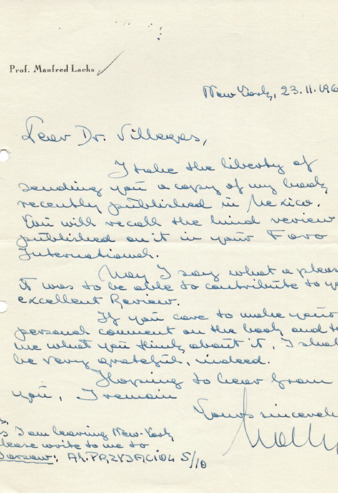 Prof. Manfred Lachs
New York, 23.11.196
Dear Dr. Villegas,
I take the liberty of
sending you a copy of my book
recently published in Mexico.
You will recall the kind review
published on it in your Foro
Internacional.
May I say what a pleas
it was to be able to contribute to yo
excellent Review.
If you care to make your
personal comment on the book and te
me what you think about it, I shal
be very grateful, indeed.
Hoping to hear from
you, I remain
Yours sincerel
s I am leaving New-York
lease write to me to
Warsaw: Al. PRZYJACIOL 5/10